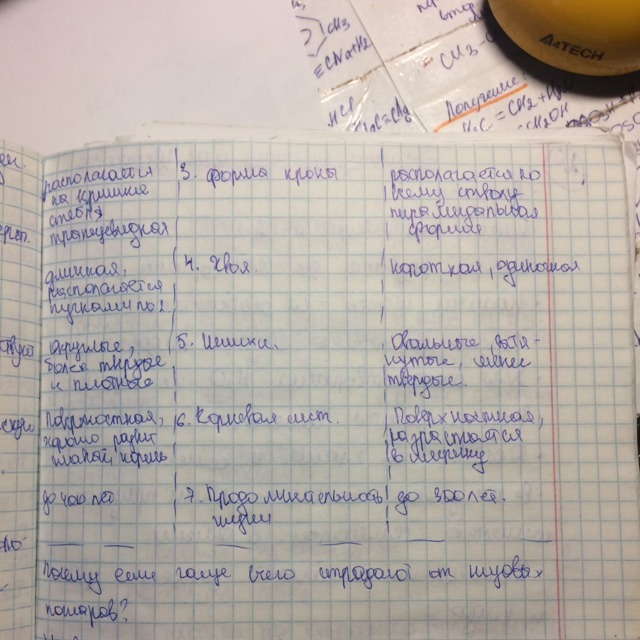 CH3
A4TECH
Получение
располагается
на кришне
ствола
3. форма кроны
располагается по
всему стволу
пирамидальная
форма
длинная,
располагается
пучками по 2
4. Хвоя.
короткая, одинокая
округлые,
более твёрдые
и плотные
5. Шишки.
Овальные, вытя-
нутые, менее
твёрдые.
Поверхностная,
хорошо развит
главный корень
6. Корневая сист.
Поверхностная,
разрастается
в ширину
до 400 лет
7. Продолжительность
жизни
до 300 лет.
Почему ели чаще всего страдают от низовых
пожаров?